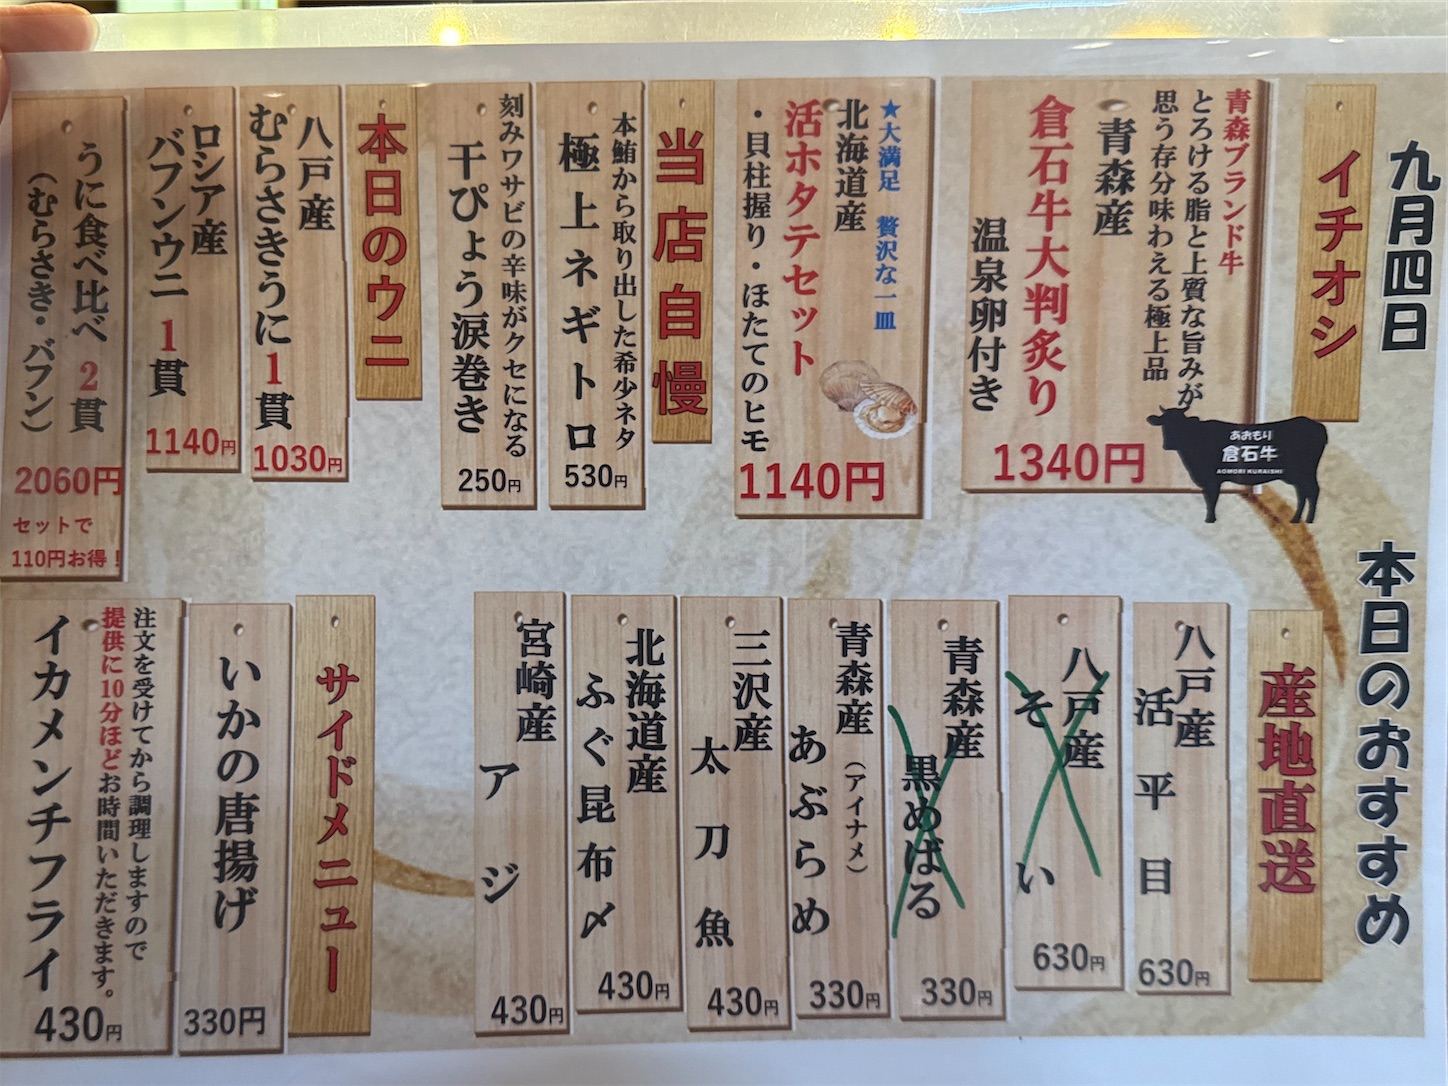 九月四日 本日のおすすめ
イチオシ
青森ブランド牛
とろける脂と上質な旨みが
思う存分味わえる極上品
青森産
倉石牛大判炙り
温泉卵付き
1340円
あおもり
倉石牛
AOMORI KURAISHI
★大満足 贅沢な一皿
北海道産
活ホタテセット
・貝柱握り・ほたてのヒモ
1140円
当店自慢
本鮪から取り出した希少ネタ
極上ネギトロ
530円
刻みワサビの辛味がクセになる
干ぴょう涙巻き
250円
本日のウニ
八戸産
むらさきうに1貫
1030円
ロシア産
バフンウニ 1貫
1140円
うに食べ比べ 2貫
(むらさき・バフン)
2060円
セットで
110円お得!
産地直送
八戸産
活平目
630円
八戸産
そい
630円
青森産
黒めばる
330円
青森産
(アイナメ)
あぶらめ
330円
三沢産
太刀魚
430円
北海道産
ふぐ昆布〆
430円
宮崎産
アジ
430円
サイドメニュー
いかの唐揚げ
330円
注文を受けてから調理しますので
提供に10分ほどお時間いただきます。
イカメンチフライ
430円